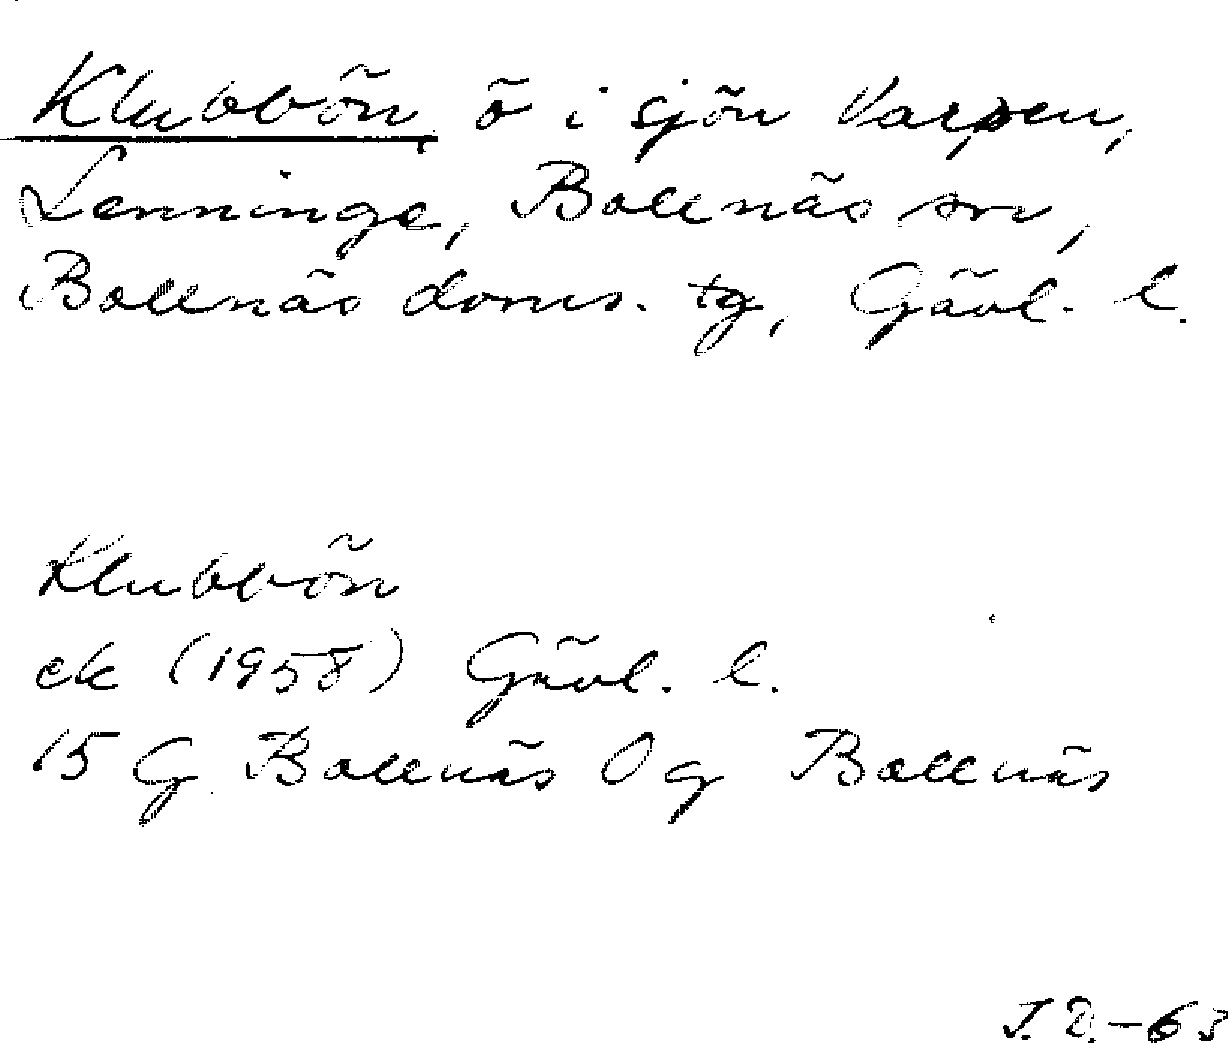 Klubbön, ö i sjön Varpen,
Lenninge, Bollnäs sn,
Bollnäs doms. tg, Gävl. l.
Klubbön
ek (1958) Gävl. l.
15 G Bollnäs Og Bollnäs
J.D.-63